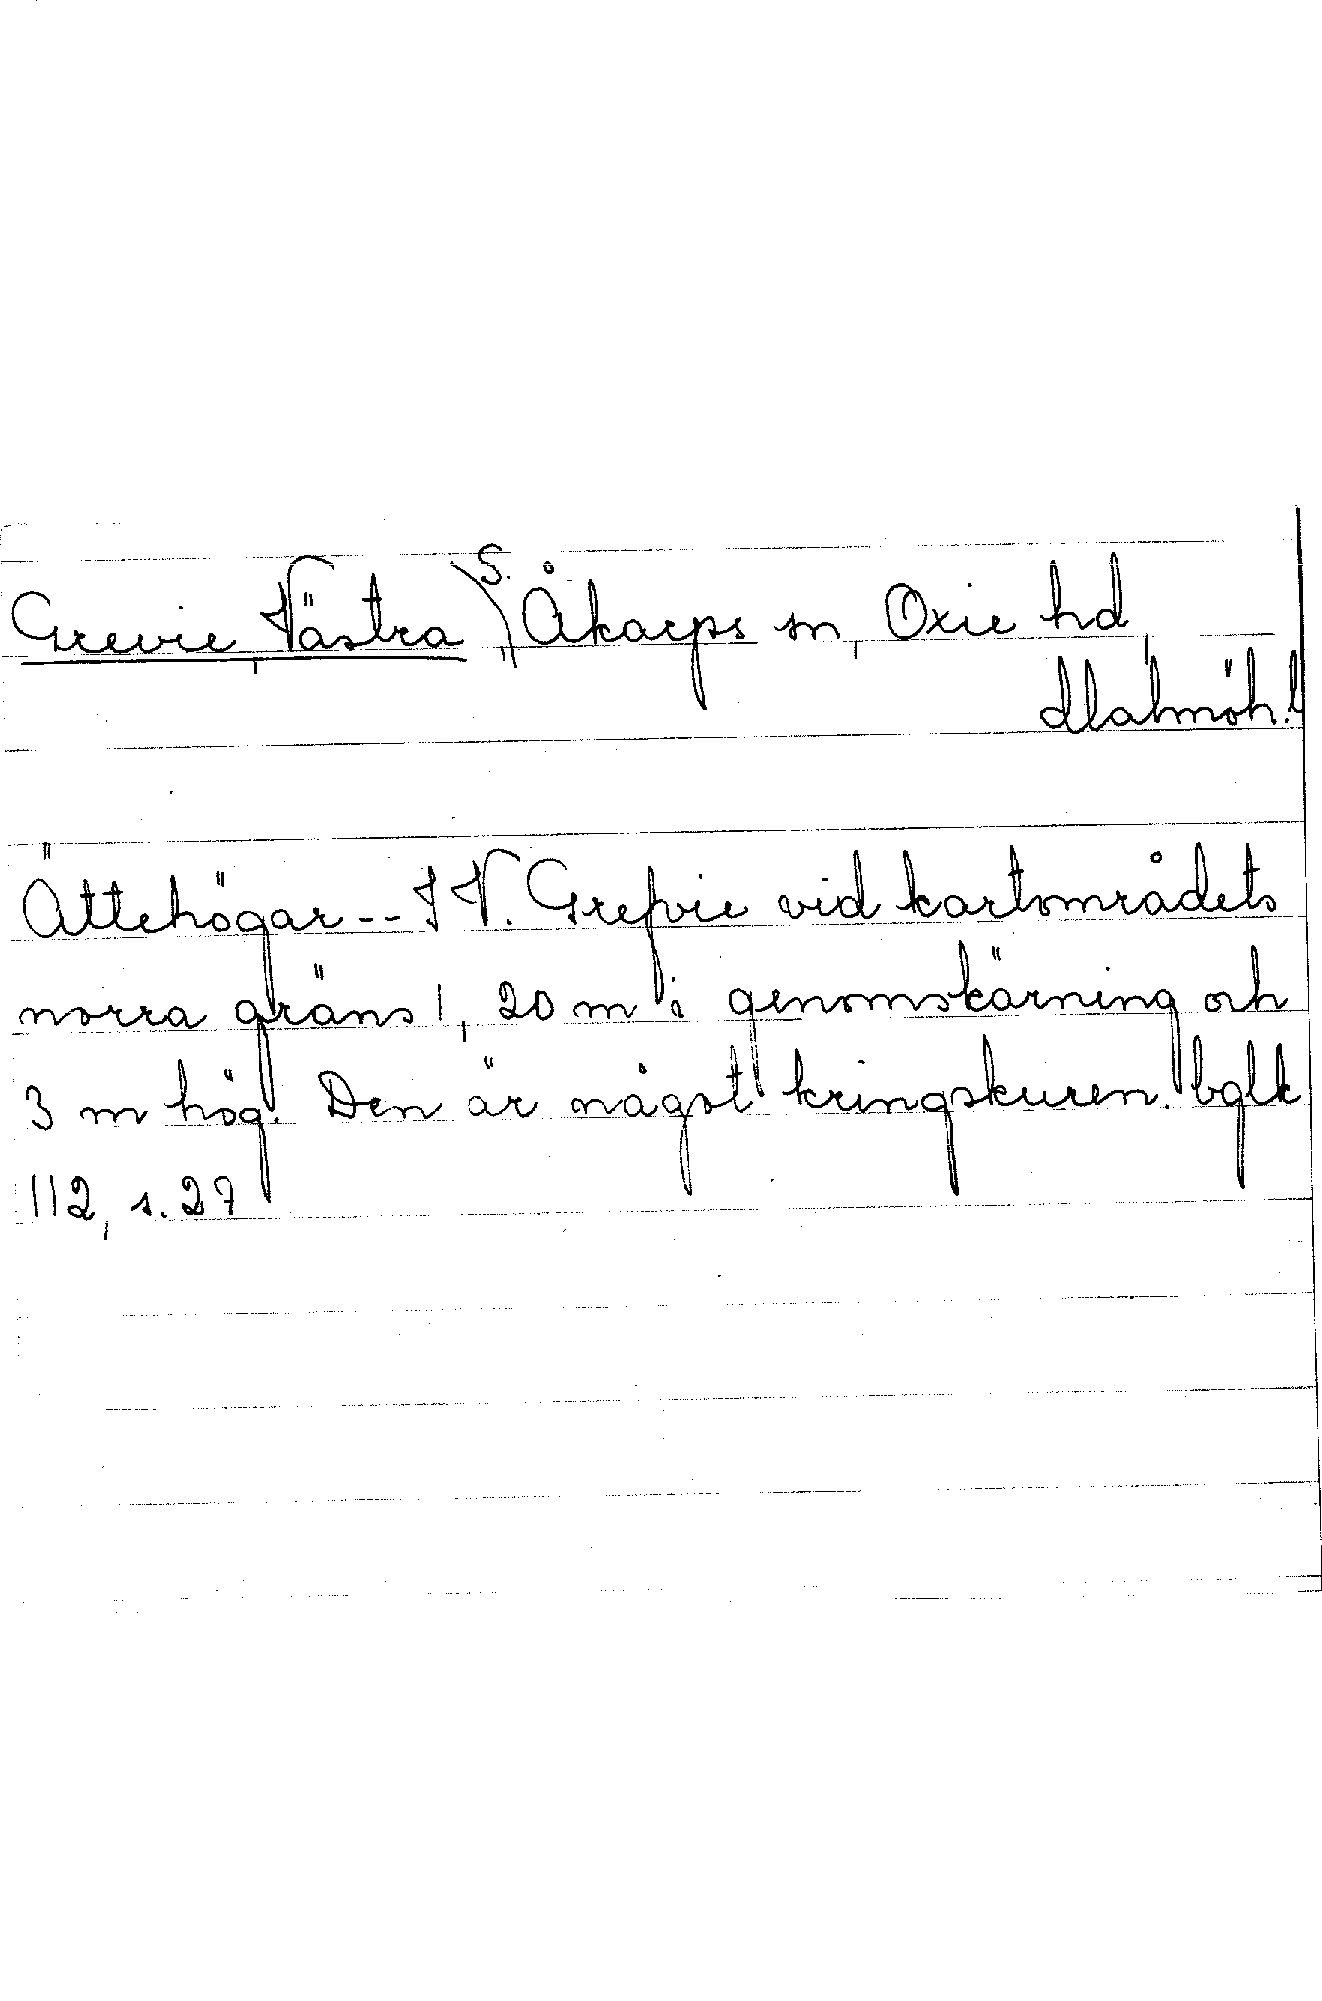 Grevie, Västra, S. Åkarps sn, Oxie hd,
Malmöh. l
Ättehögar -- I V. Grefvie vid kartområdets
norra gräns 1, 20 m i genomskärning och
3 m hög. Den är något kringskuren. bglk
112, s. 27